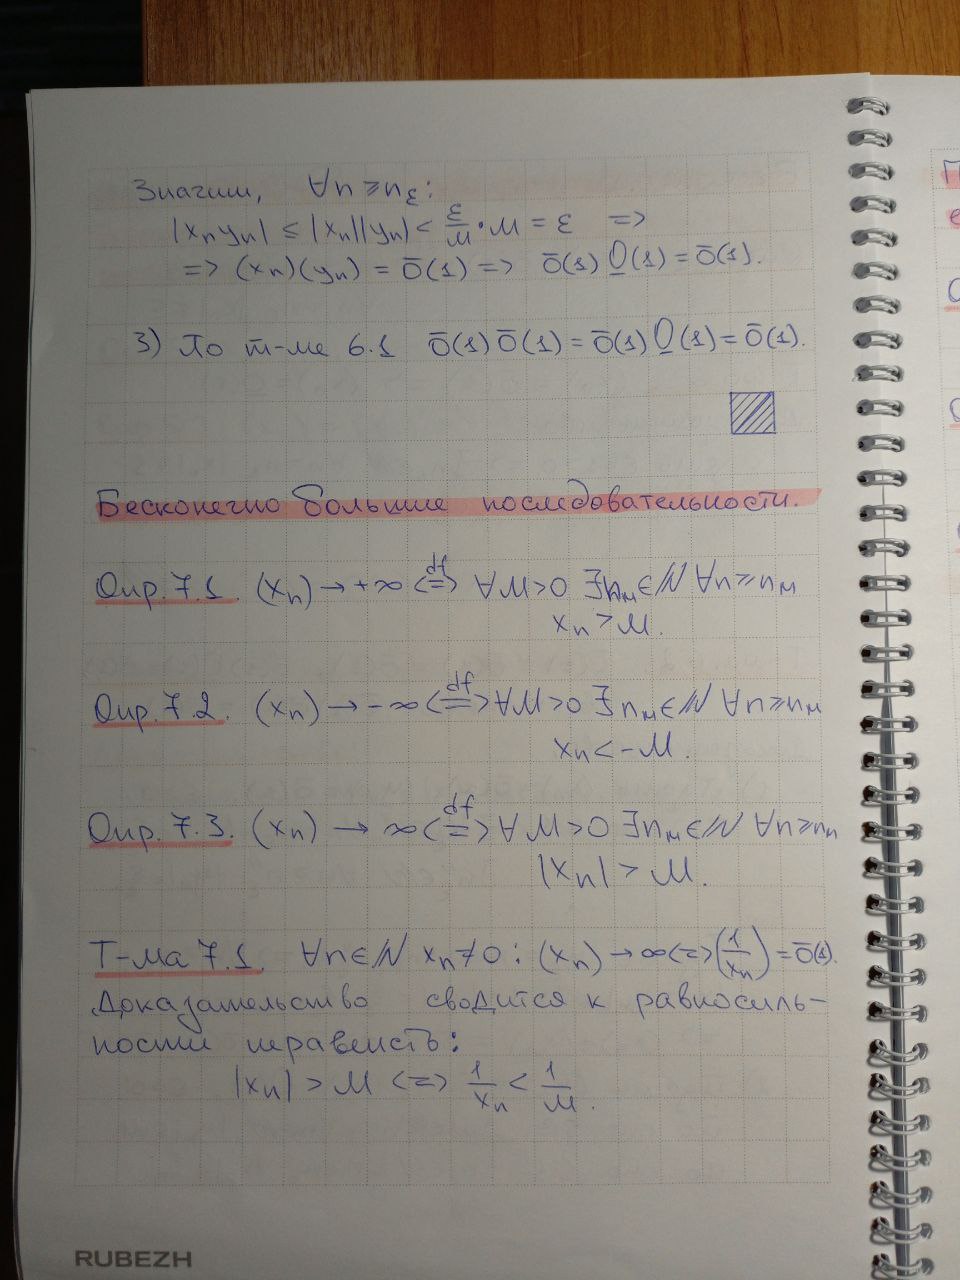 Значит, ∀n ≥ n_ε:
|x_n y_n| ≤ |x_n||y_n| < ε/M · M = ε =>
=> (x_n)(y_n) = ō(1) => ō(1) O̲(1) = ō(1).
3) По т-ме 6.1 ō(1) ō(1) = ō(1) O̲(1) = ō(1).
Бесконечно большие последовательности.
Опр. 7.1. (x_n) → +∞ <=df=> ∀M>0 ∃n_M∈ℕ ∀n≥n_M
x_n > M.
Опр. 7.2. (x_n) → -∞ <=df=> ∀M>0 ∃n_M∈ℕ ∀n≥n_M
x_n < -M.
Опр. 7.3. (x_n) → ∞ <=df=> ∀M>0 ∃n_M∈ℕ ∀n≥n_M
|x_n| > M.
Т-ма 7.1. ∀n∈ℕ x_n≠0 : (x_n) → ∞ <=> (1/x_n) = ō(1).
Доказательство сводится к равносиль-
ности неравенств:
|x_n| > M <=> 1/x_n < 1/M.
RUBEZH